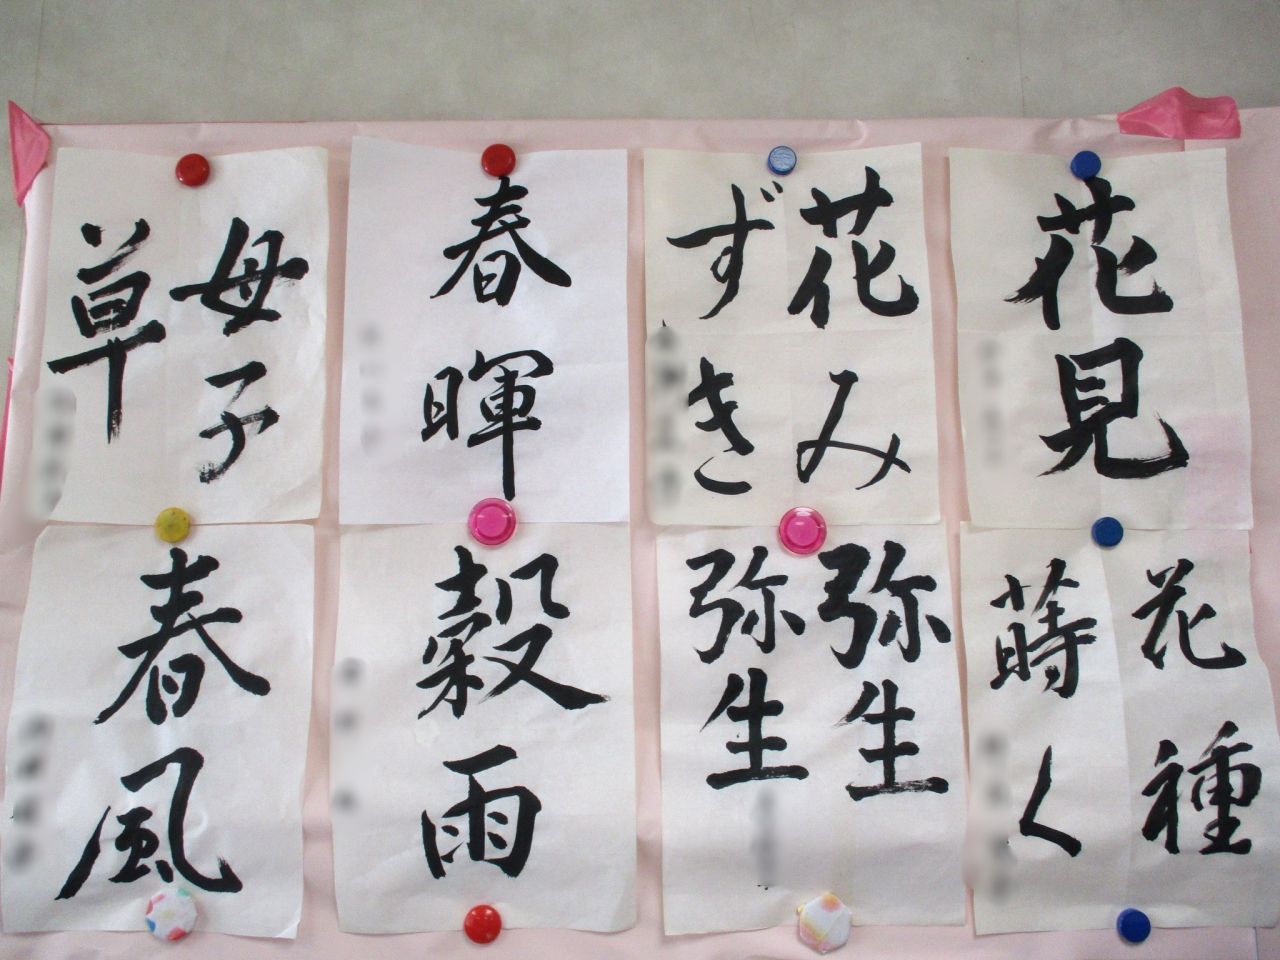 花見
花み
ずき
春暉
母子
草
花種
蒔く
弥生
弥生
穀雨
春風